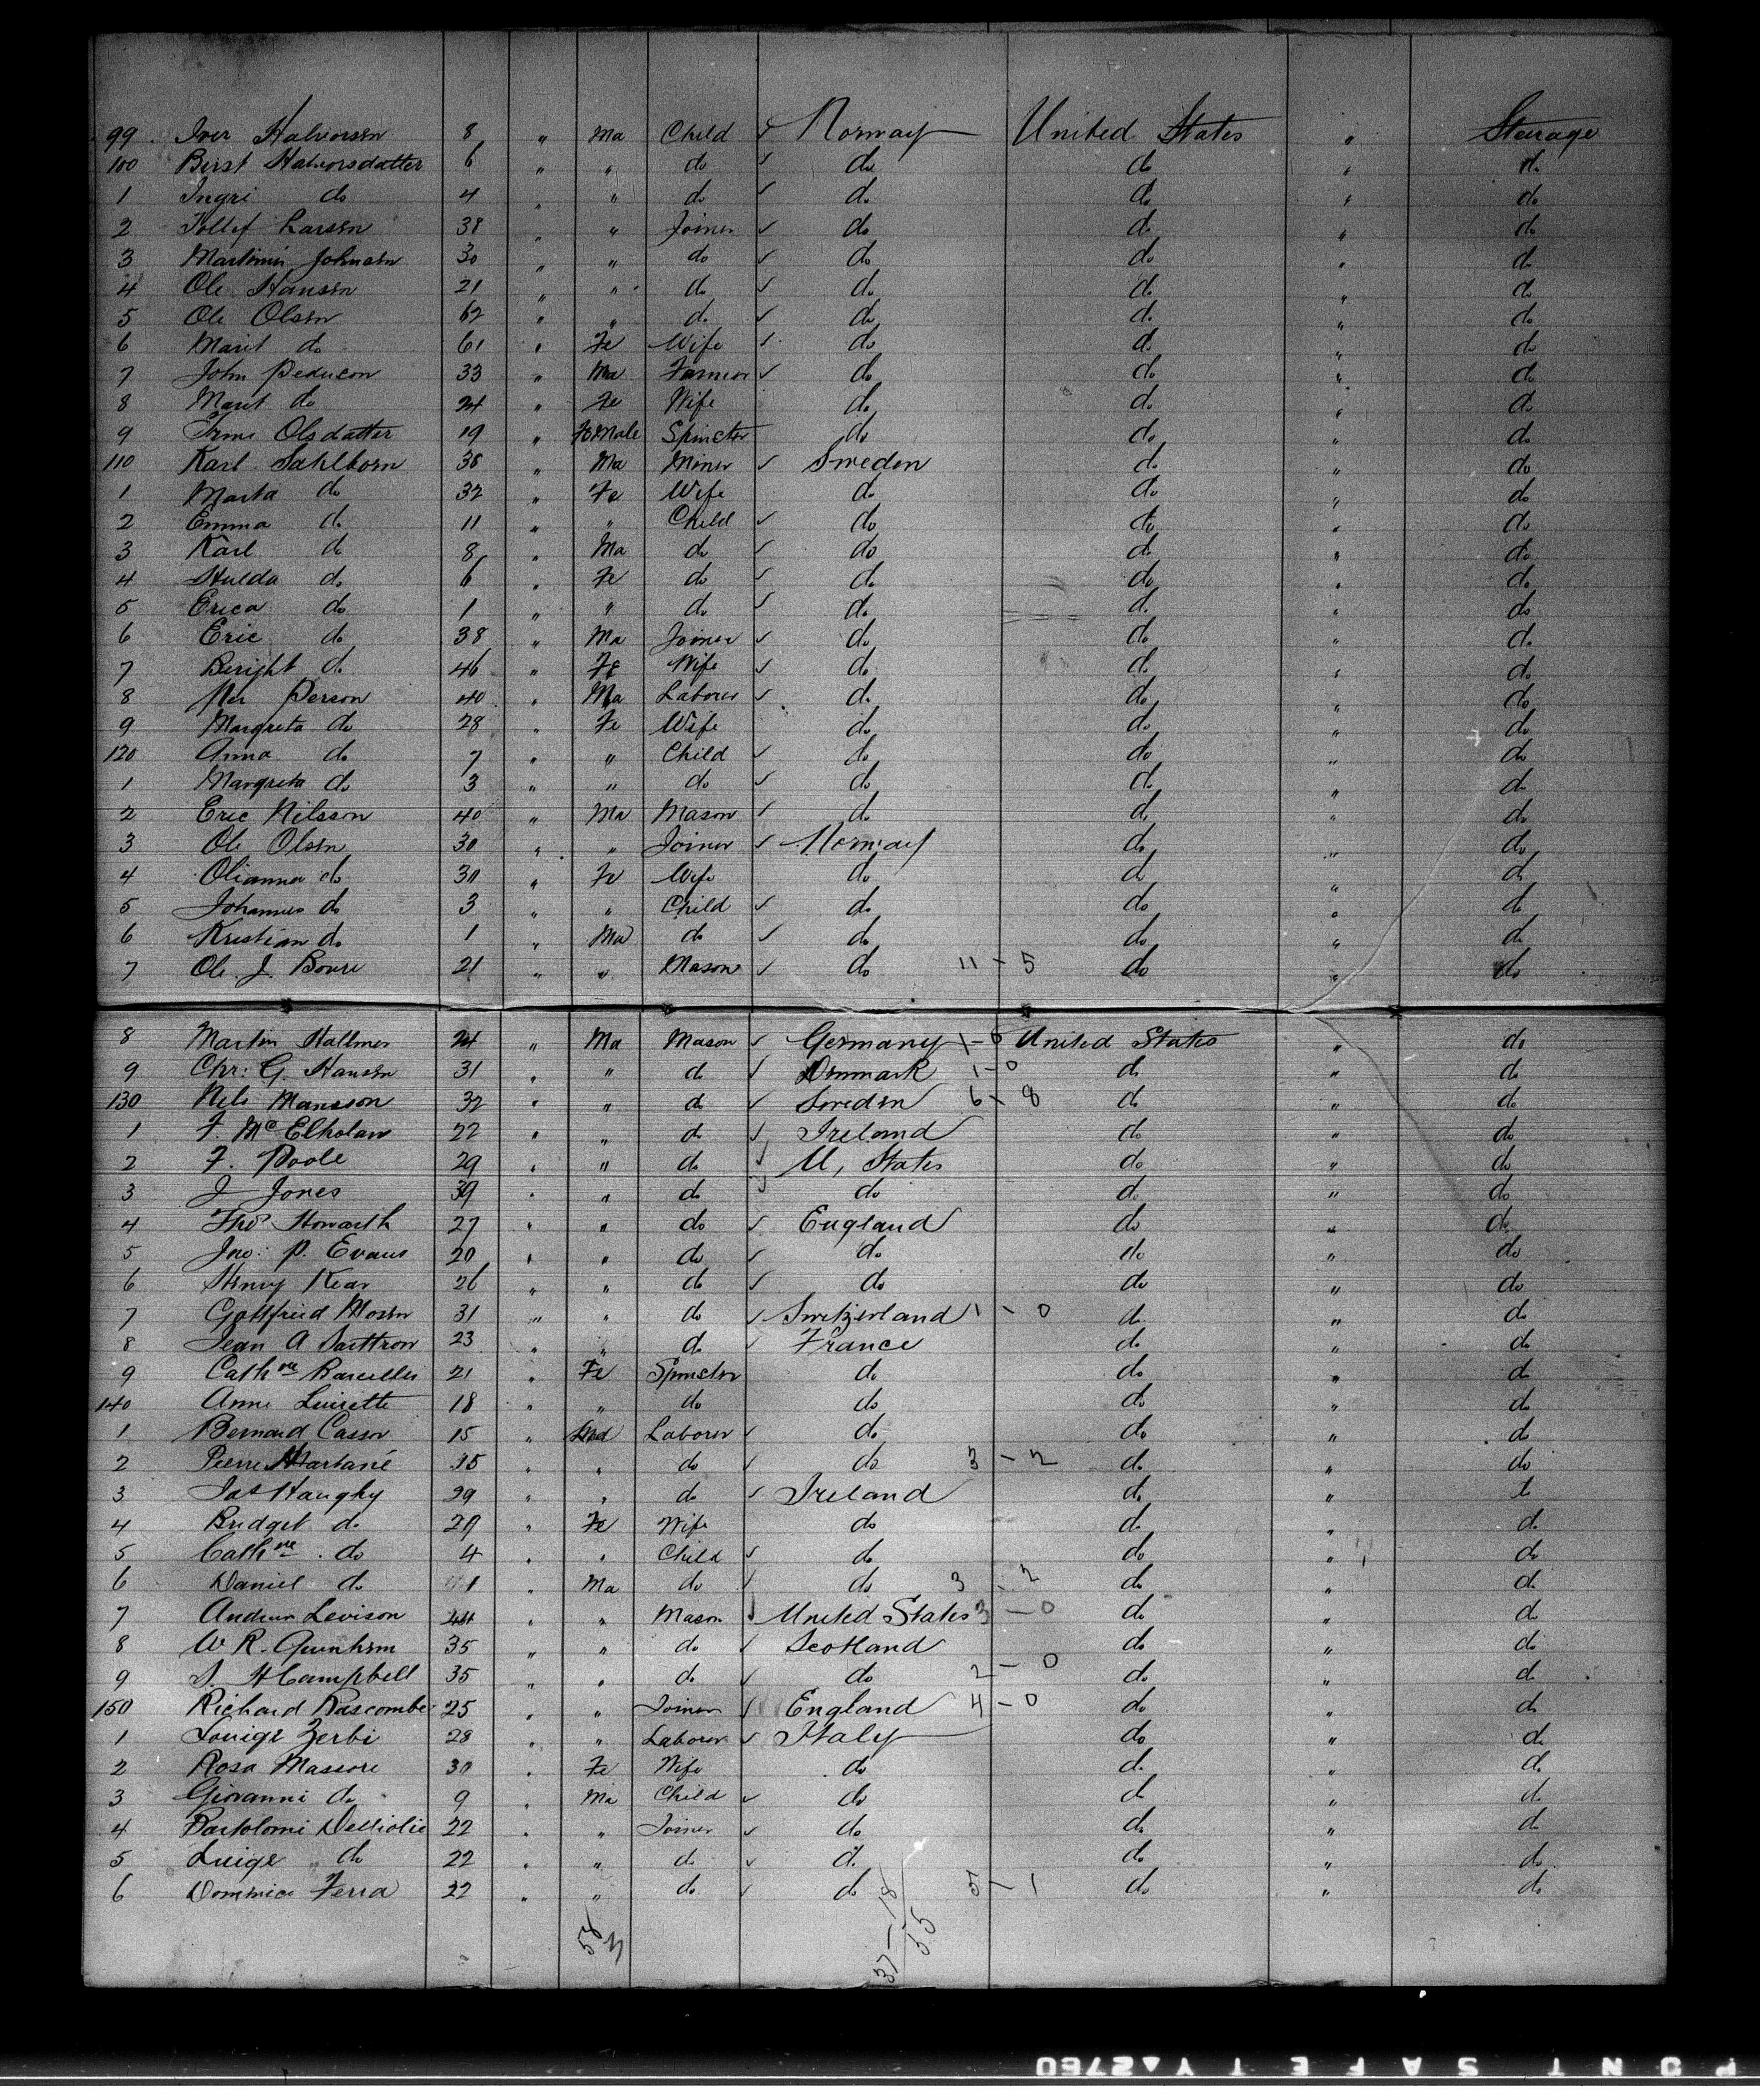 99 Iver Halvorsen 8 " Ma Child ✓ Norway United States " Steerage
100 Berst Halvorsdatter 6 " " do ✓ do do " do
1 Ingri do 4 " " do ✓ do do " do
2 Tollef Larsen 38 " " Joiner ✓ do do " do
3 Martinius Johnsen 30 " " do ✓ do do " do
4 Ole Hansen 21 " " do ✓ do do " do
5 Ole Olsen 62 " " do ✓ do do " do
6 Marit do 61 " Fe Wife ✓ do do " do
7 John Pederson 33 " Ma Farmer ✓ do do " do
8 Marit do 24 " Fe Wife do do " do
9 Olsdatter 19 " FeMale Spinster do do " do
110 Karl Sahlborn 38 " Ma Miner ✓ Sweden do " do
1 Marta do 32 " Fe Wife do do " do
2 Emma do 11 " " Child ✓ do do " do
3 Karl do 8 " Ma do ✓ do do " do
4 Hulda do 6 " Fe do ✓ do do " do
5 Erica do 1 " " do ✓ do do " do
6 Eric do 38 " Ma Joiner ✓ do do " do
7 Beright do 46 " Fe Wife ✓ do do " do
8 Per Person 40 " Ma Laborer ✓ do do " do
9 Margreta do 28 " Fe Wife do do " do
120 Anna do 7 " " Child ✓ do do " do
1 Margreta do 3 " " do ✓ do do " do
2 Eric Nilsson 40 " Ma Mason ✓ do do " do
3 Ole Olsen 30 " " Joiner ✓ Norway do " do
4 Olianna do 30 " Fe Wife do do " do
5 Johannes do 3 " " Child ✓ do do " do
6 Kristian do 1 " Ma do ✓ do do " do
7 Ole J. 21 " " Mason ✓ do 11 - 5 do " do
8 Martin Hallmer 24 " Ma Mason ✓ Germany 1 - 0 United States " do
9 Chr: G. Hansen 31 " " do ✓ Denmark 1 - 0 do " do
130 Nels Mansson 32 " " do ✓ Sweden 6 - 8 do " do
1 F. McElholan 22 " " do ✓ Ireland do " do
2 F. Poole 29 " " do ✓ U, States do " do
3 J Jones 39 " " do ✓ do do " do
4 Thos Howarth 27 " " do ✓ England do " do
5 Jno: P. Evans 20 " " do ✓ do do " do
6 Henry Kear 26 " " do ✓ do do " do
7 Gottfried Mosen 31 " " do ✓ Switzerland 1 - 0 do " do
8 Jean A Sarttron 23 " " do ✓ France do " do
9 Cathne Barcelles 21 " Fe Spinster do do " do
140 Anne Luirette 18 " " do do do " do
1 Bernard Casson 15 " Laborer ✓ do do " do
2 Pierre Martané 35 " " do ✓ do 3 - 2 do " do
3 Jas Haughy 39 " " do ✓ Ireland do " do
4 Bridget do 29 " Fe Wife do do " do
5 Cathne do 4 " " Child ✓ do do " do
6 Daniel do 1 " Ma do ✓ do 3 - 2 do " do
7 Andrew Levison 44 " " Mason ✓ United States 3 - 0 do " do
8 W R. Quinhem 35 " " do ✓ Scotland do " do
9 S. H Campbell 35 " " do ✓ do 2 - 0 do " do
150 Richard Bascombe 25 " " Joiner ✓ England 4 - 0 do " do
1 Louige Zerbi 28 " " Laborer ✓ Italy do " do
2 Rosa Massore 30 " Fe Wife do do " do
3 Giovanni do 9 " Ma Child ✓ do do " do
4 Bartolomi 22 " " Joiner ✓ do do " do
5 Luige do 22 " " do ✓ do do " do
6 Dominica Ferra 22 " " do ✓ do 5 - 1 do " do
58
37 - 18
55
PONT SAFETY▲2760